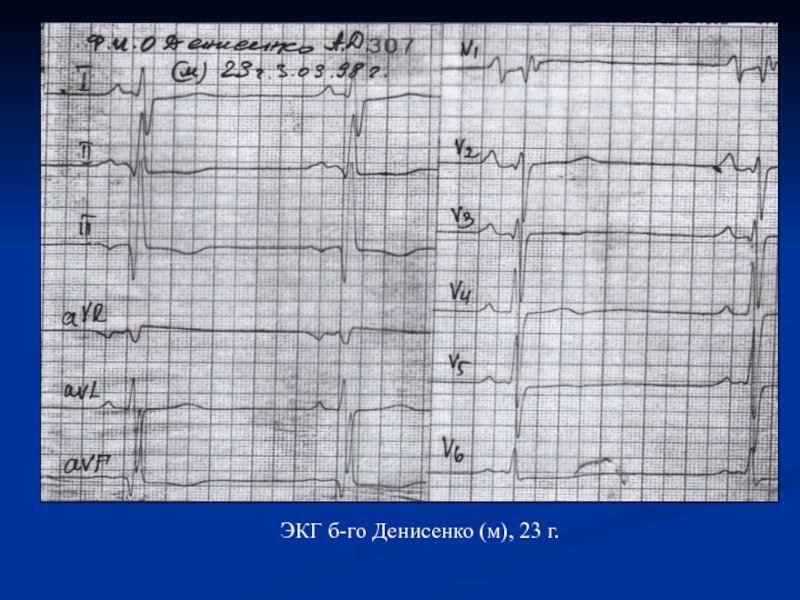 Ф.И.О Денисенко А.Д. 307
(м) 23 г. 3.03.98 г.
I
II
III
aVR
aVL
aVF
V1
V2
V3
V4
V5
V6
ЭКГ б-го Денисенко (м), 23 г.